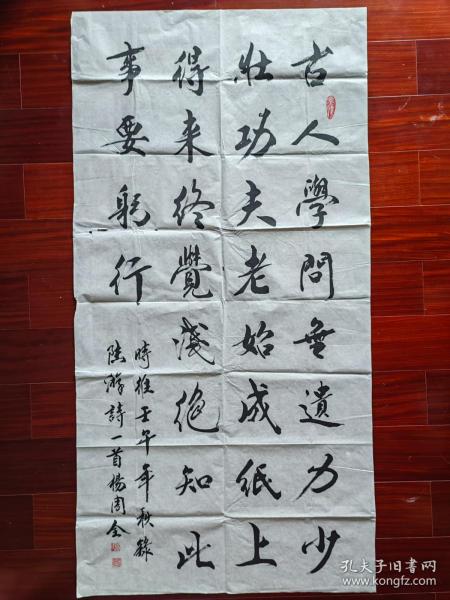 古人學問無遺力少
壯功夫老始成紙上
得来终覺淺絶知此
事要躬行
時維壬午年秋錄
陸游詩一首楊周全
孔夫子旧书网
kongfz.com